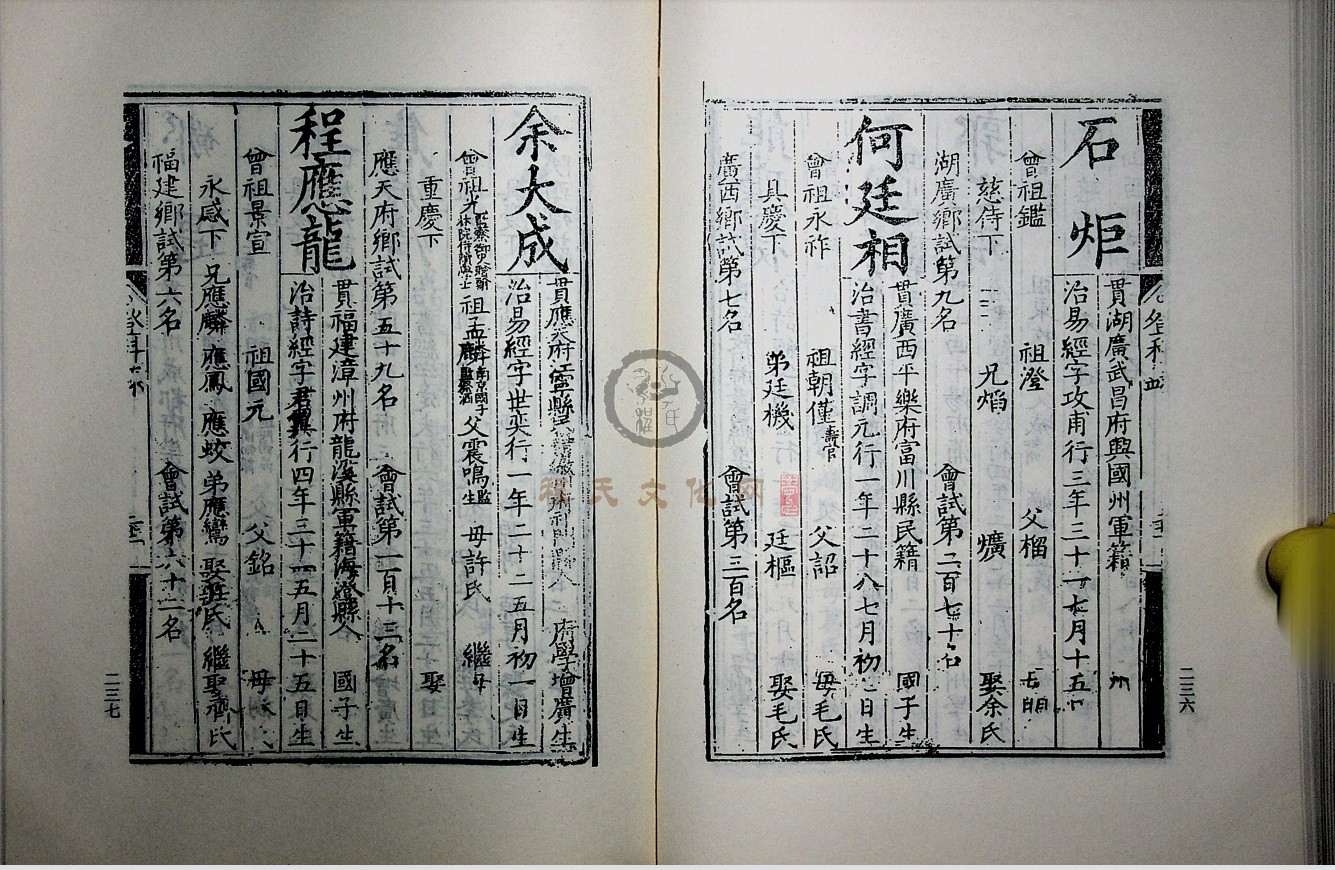 石炬
貫湖廣武昌府興國州軍籍
治易經字攻甫行三年三十七月十五
曾祖鑑 祖澄 父榴
慈侍下 兄焰 爌 娶余氏
湖廣鄉試第九名 會試第二百七十名
何廷相
貫廣西平樂府富川縣民籍 國子生
治書經字調元行一年二十八七月初 日生
曾祖永祚 祖朝僅壽官 父詔 母毛氏
具慶下 弟廷機 廷樞 娶毛氏
廣西鄉試第七名 會試第三百名
二三六
余大成
貫應天府江寧縣 府學增廣生
治易經字世奕行一年二十二五月初一日生
曾祖光監察御史贈翰林院侍讀學士 祖孟麟南京國子監祭酒 父震鳴監生 母許氏 繼母
重慶下 娶
應天府鄉試第五十九名 會試第一百十三名
程應龍
貫福建漳州府龍溪縣軍籍海澄縣人 國子生
治詩經字君翼行四年三十四五月二十五日生
曾祖景宣 祖國元 父銘 母
永感下 兄應麟 應鳳 應蛟 弟應鸞 娶 氏 繼娶 氏
福建鄉試第六名 會試第六十二名
二三七
程氏文化网